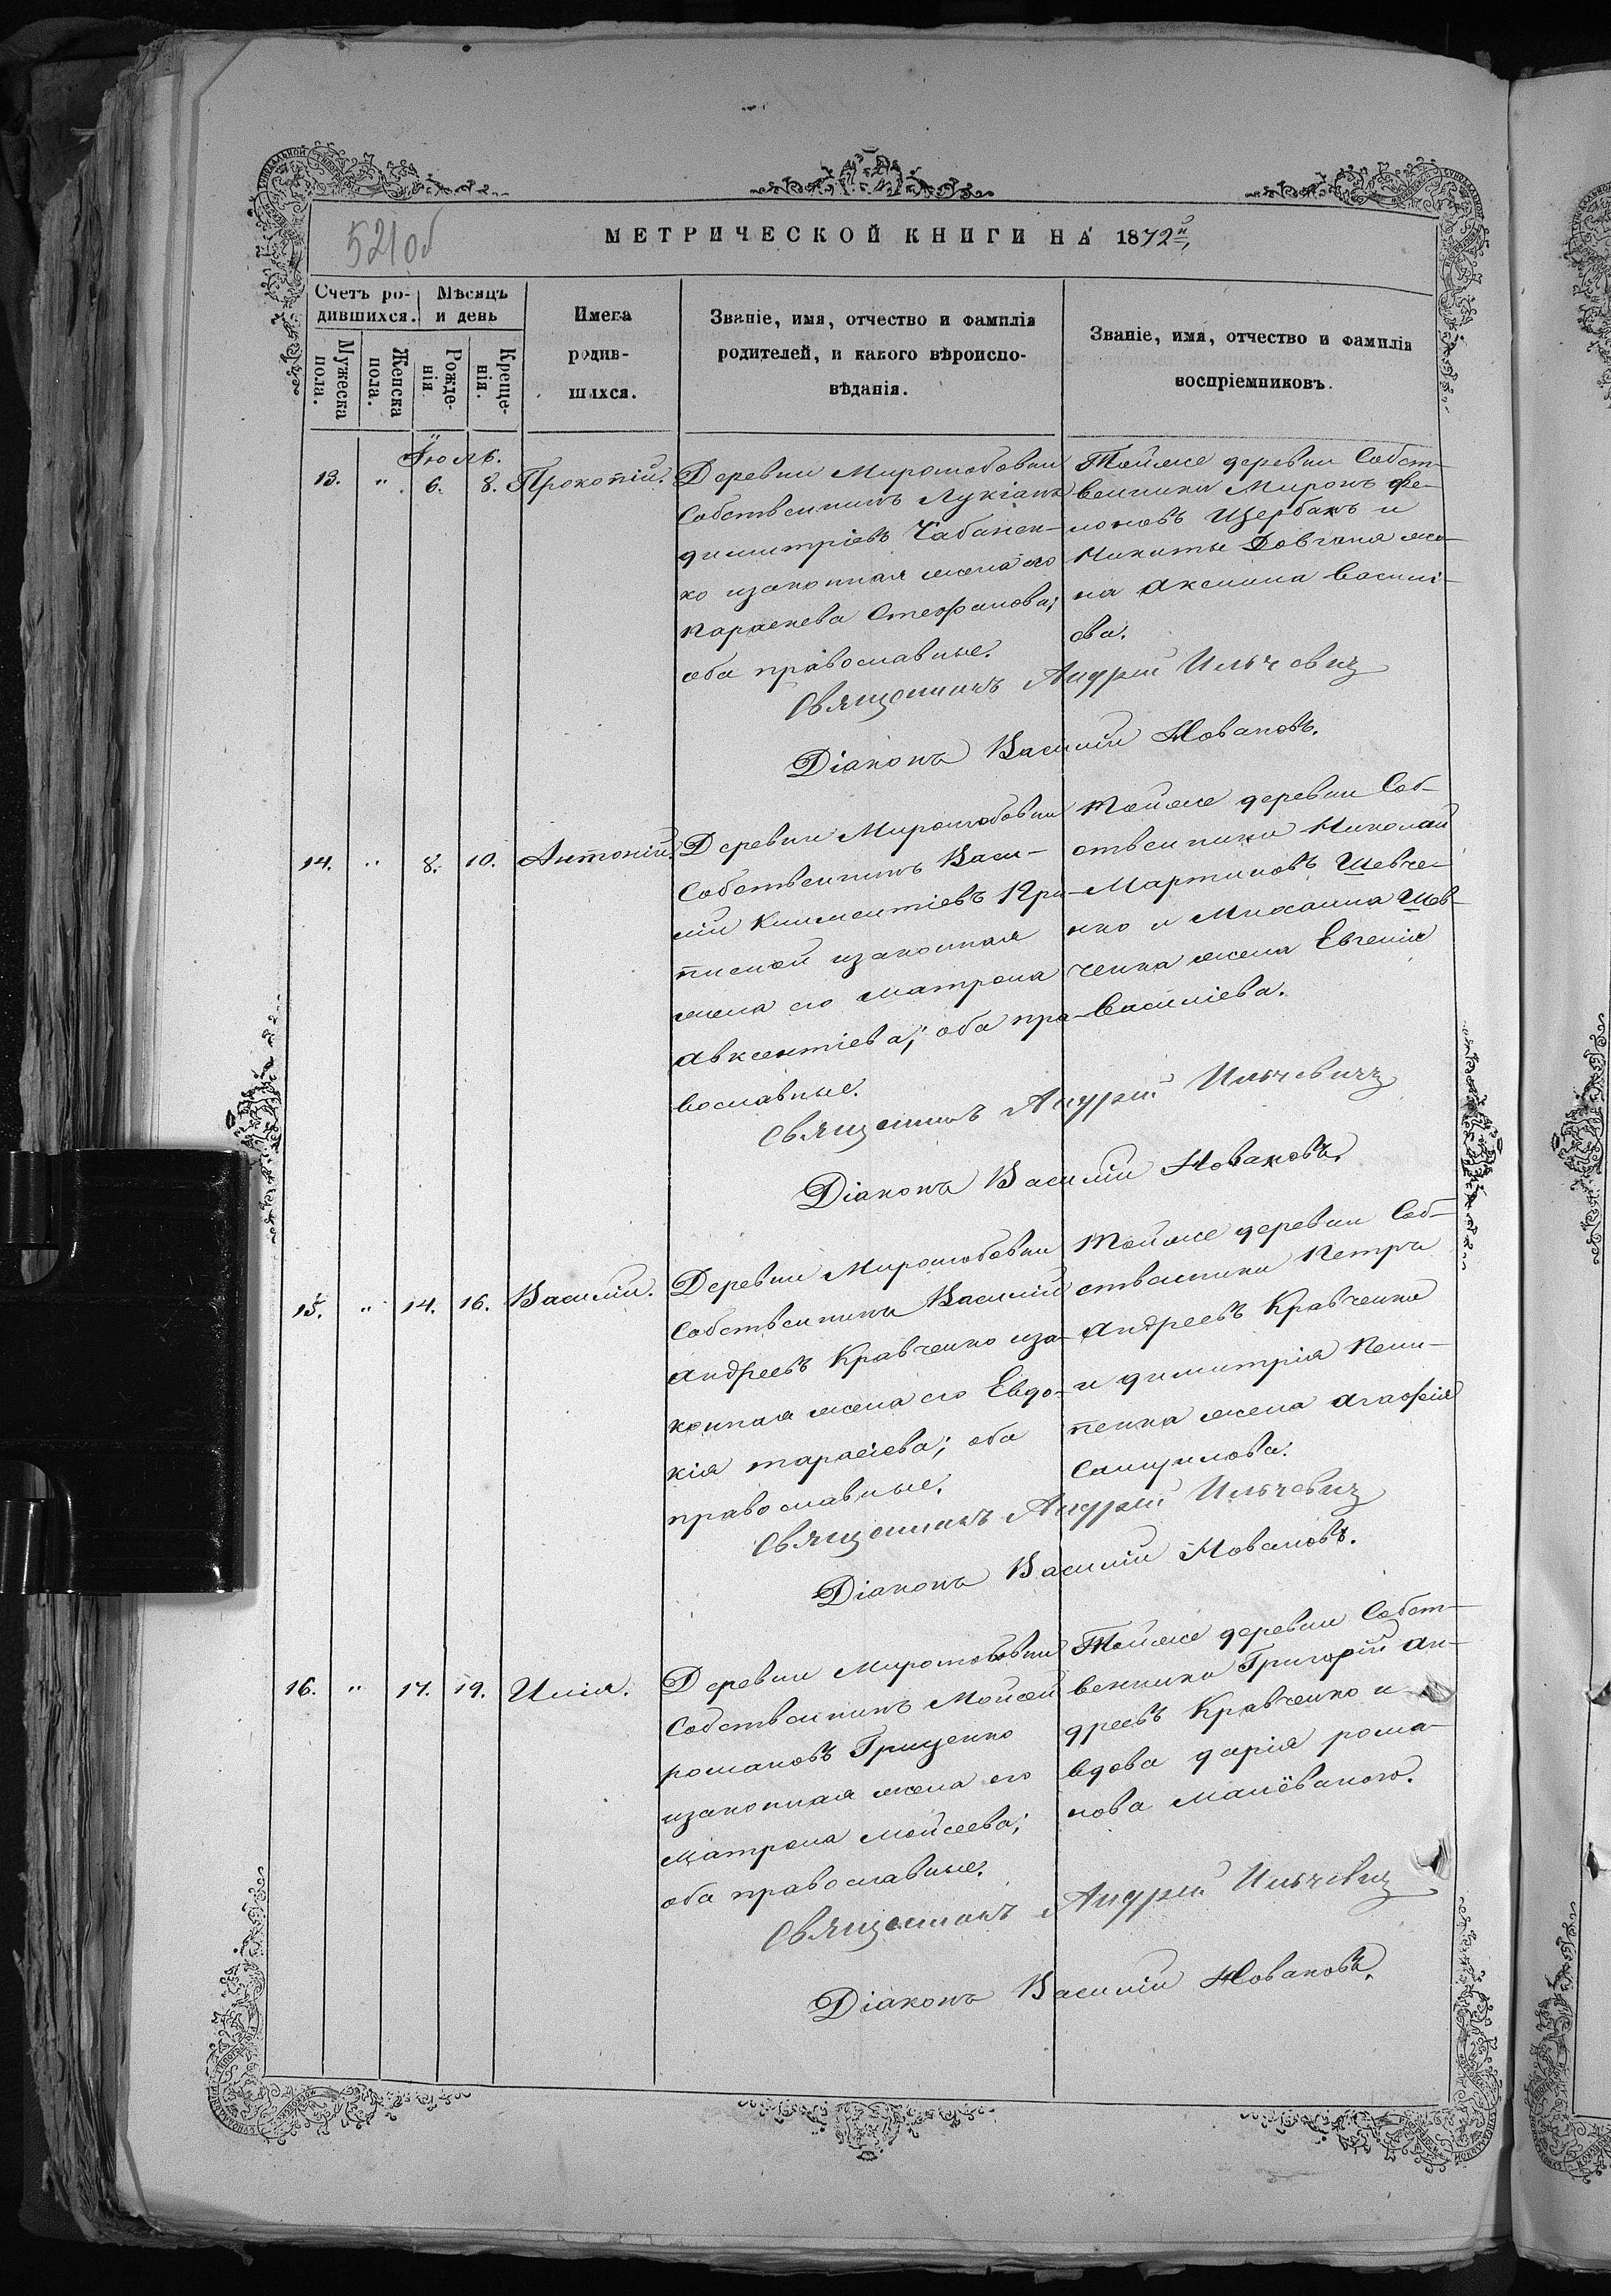 521об
МЕТРИЧЕСКОЙ КНИГИ НА 1872й
Счетъ ро-
дившихся.
Мѣсяцъ
и день
Имена
родив-
шихся.
Званіе, имя, отчество и фамилія
родителей, и какого вѣроиспо-
вѣданія.
Званіе, имя, отчество и фамилія
воспріемниковъ.
Мужеска
пола.
Женска
пола.
Рожде-
нія.
Креще-
нія.
Іюль.
13. " 6. 8. Прокопій.
Деревни Миролюбовки
Собственникъ Лукіанъ
димитріевъ Чабанен-
ко изаконная жена его
Параскева Стефанова;
оба православные.
Тойже деревни Собст-
венники Миронъ Фи-
лоновъ Щербакъ и
Никиты Довганя же-
на Аксинія Василі-
ева.
Священникъ Андрей Ильчевич
Діаконъ Василій Новаковъ.
14. " 8. 10. Антоній.
Деревни Миролюбовки
Собственникъ Васи-
лій Климентіевъ Кри-
пиской изаконная
жена его Матрона
Авксентіева; оба пра-
вославные.
Тойже деревни Соб-
ственники Николай
Мартиновъ Шевче-
нко и Михаила Шев-
ченка жена Евгенія
Василіева.
Священникъ Андрей Ильчевич
Діаконъ Василій Новаковъ.
15. " 14. 16. Василій.
Деревни Миролюбовки
Собственникъ Василій
Андреевъ Кравченко иза-
конная жена его Евдо-
кія тарасіева; оба
православные.
Тойже деревни Соб-
ственники Петръ
Андреевъ Кравченко
и димитрія
жена агафія
Самуилова.
Священникъ Андрей Ильчевич
Діаконъ Василій Новаковъ.
16. " 17. 19. Илія.
Деревни Миролюбовки
Собственникъ Мойсей
романовъ Гриценко
изаконная жена его
Матрона Мойсеева;
оба православные.
Тойже деревни Собст-
венники Григорій Ан-
дреевъ Кравченко и
вдова дарія рома-
нова Малёваного.
Священникъ Андрей Ильчевич
Діаконъ Василій Новаковъ.